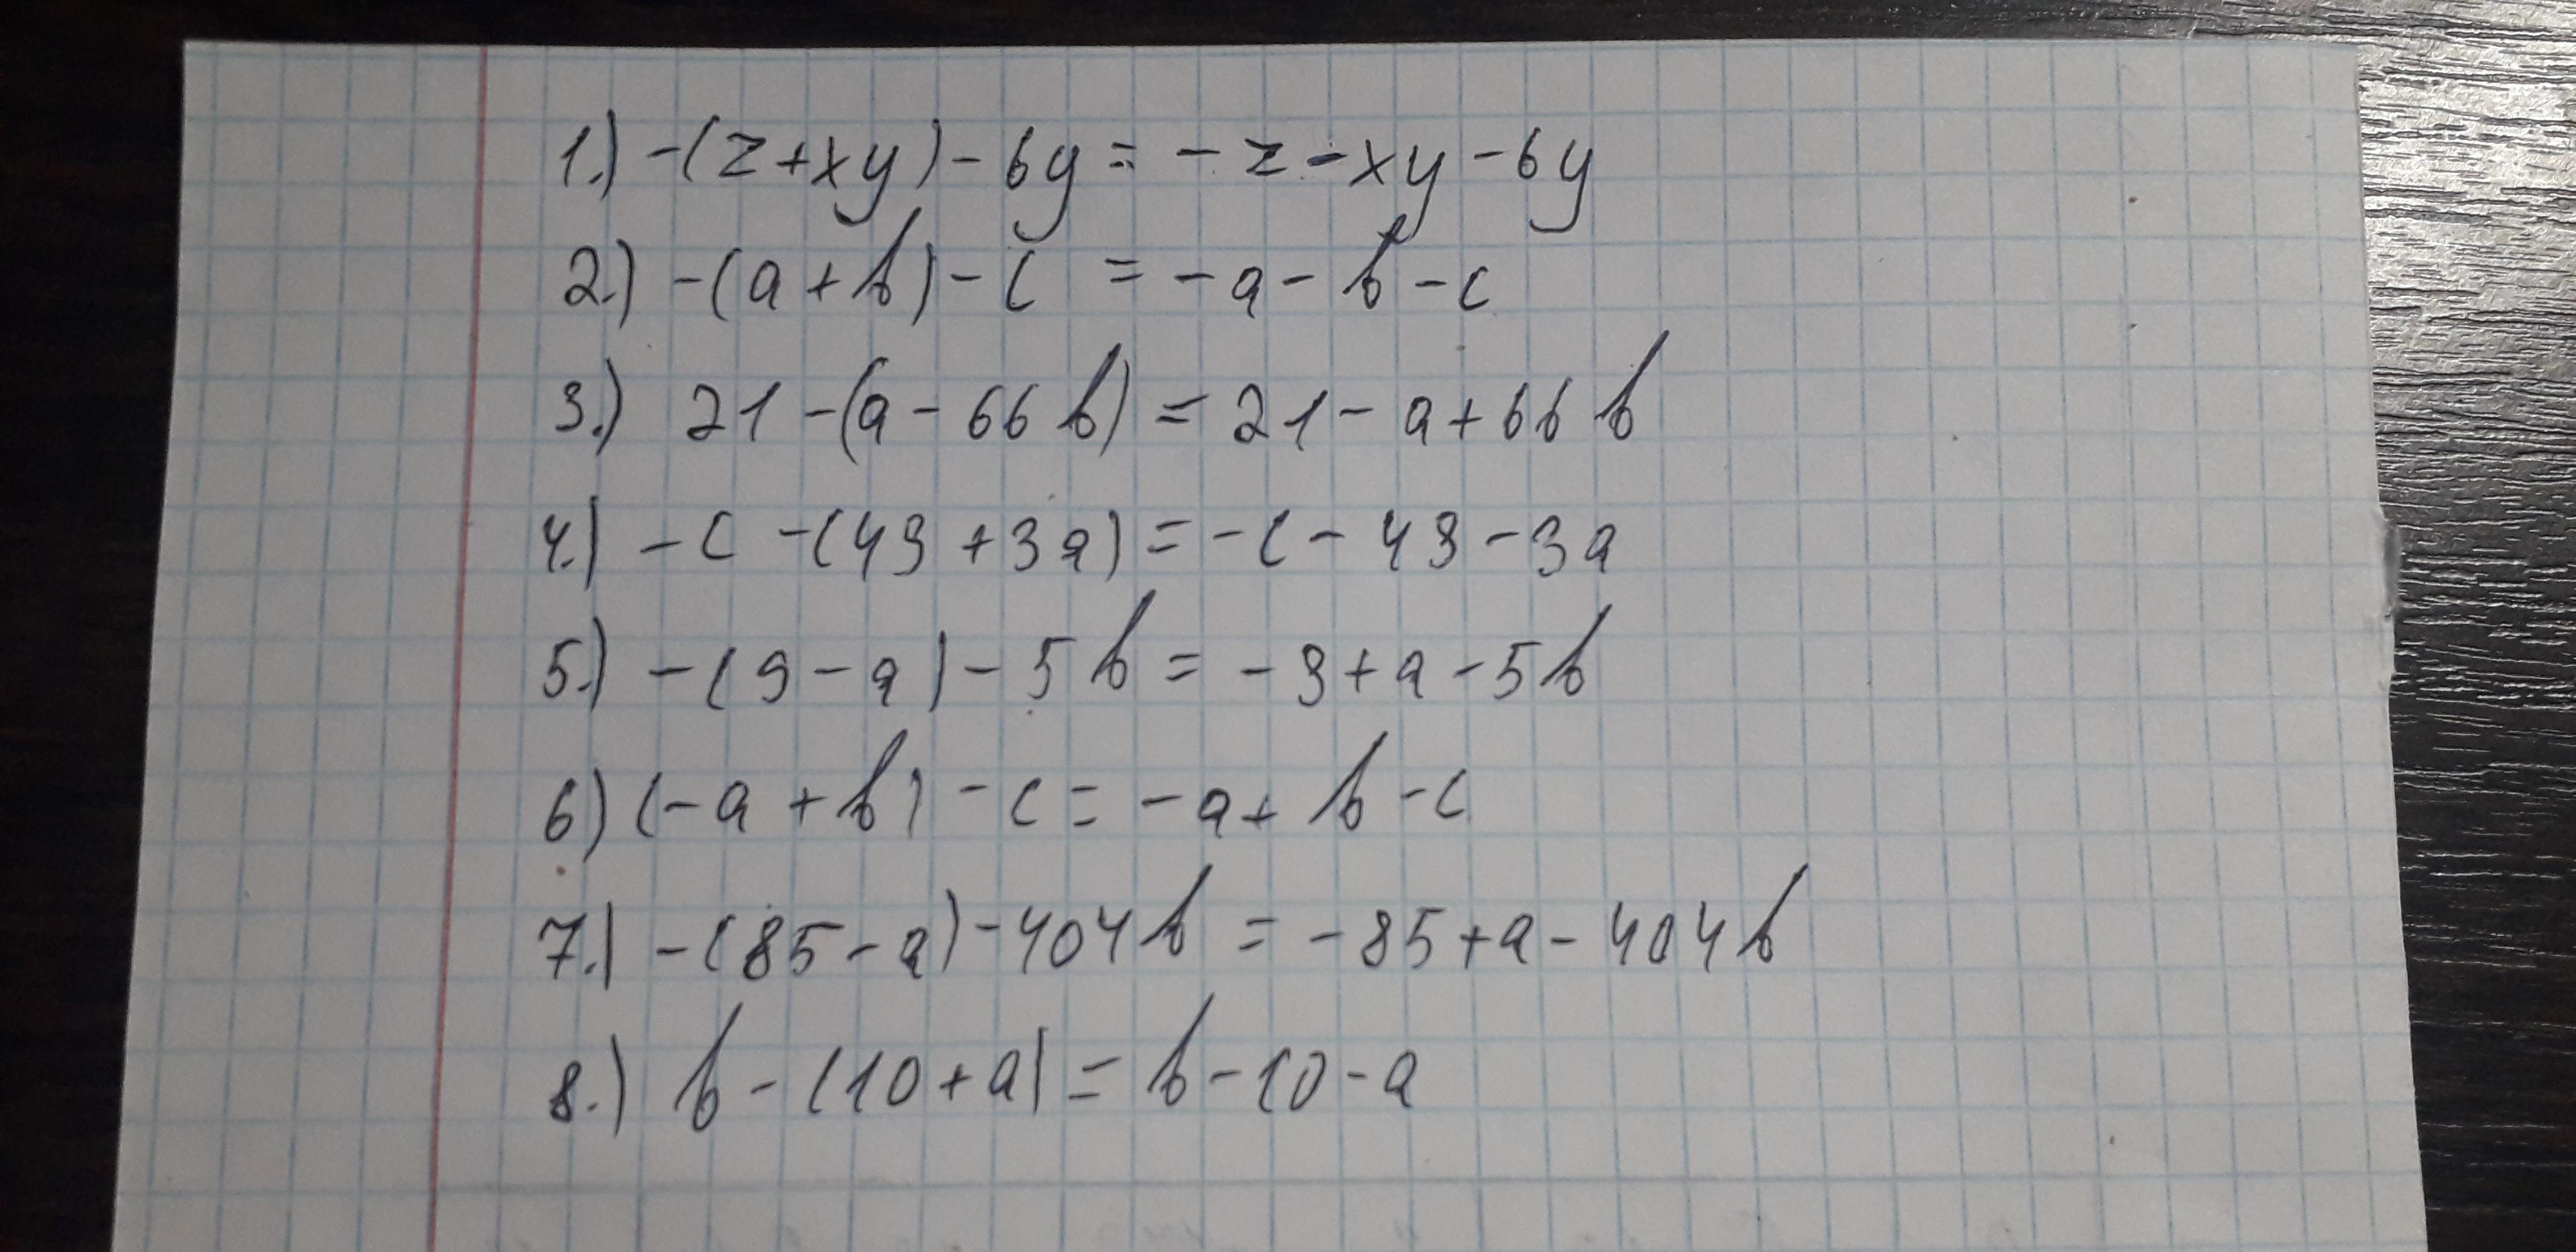 1.) -(z+xy)-6y= -z-xy-6y
2.) -(a+b)-c = -a-b-c
3.) 21-(a-66b)=21-a+66b
4.) -c-(49+3a)=-c-49-3a
5.) -(9-a)-5b=-9+a-5b
6) (-a+b)-c=-a+b-c
7.) -(85-a)-404b=-85+a-404b
8.) b-(10+a)=b-10-a